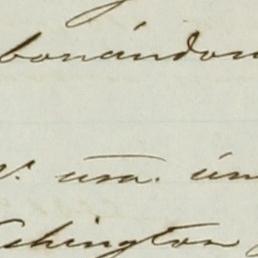 bonándon
V. una. ún
shington